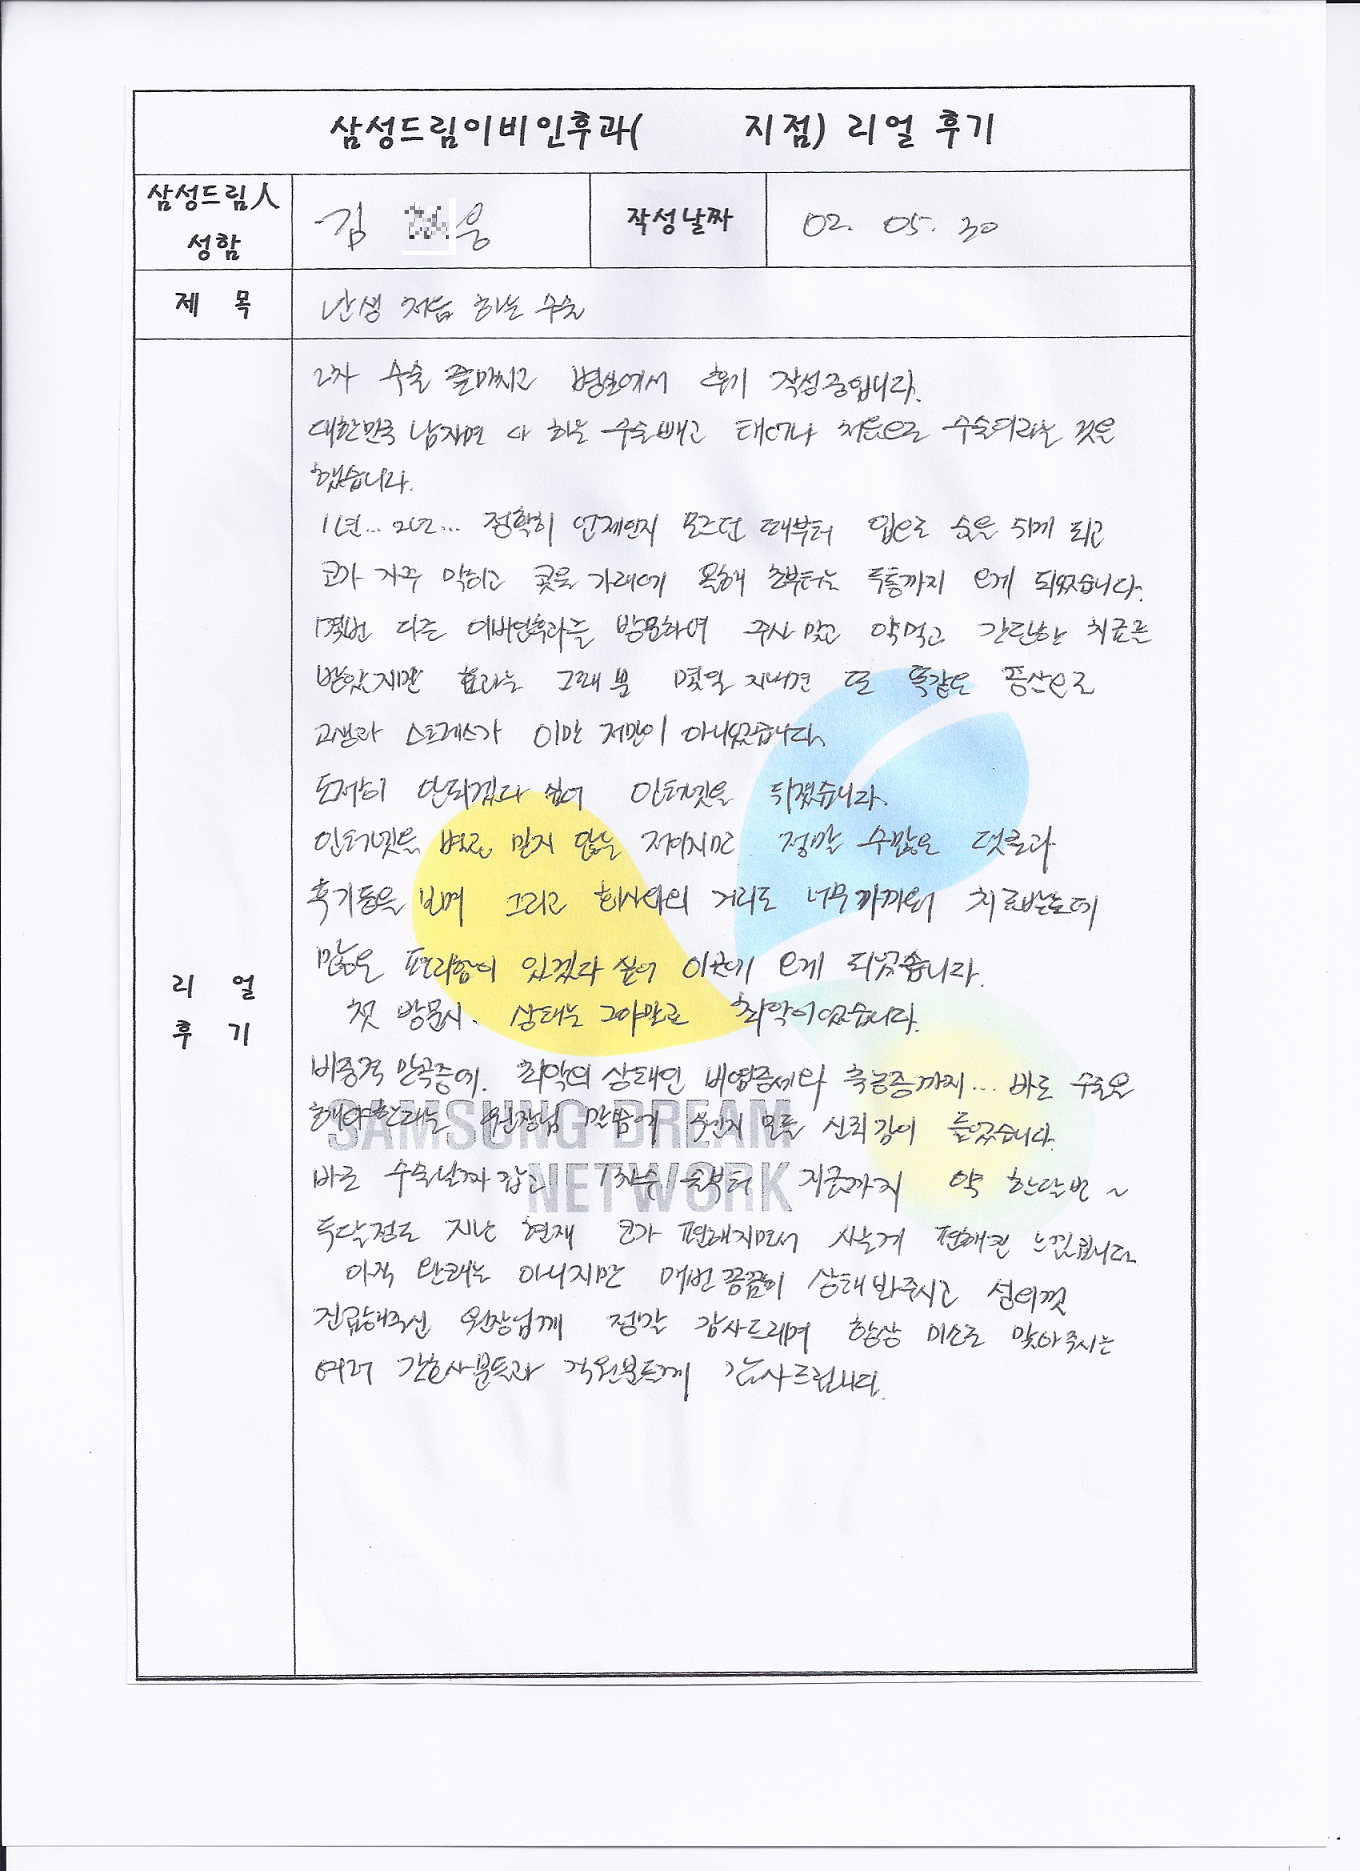 삼성드림이비인후과( 지점) 리얼 후기
삼성드림人
성함
김 웅
작성날짜
02. 05. 30
제 목
난생 처음 하는 수술
리 얼
후 기
2차 수술 끝마치고 병실에서 후기 작성중입니다.
대한민국 남자면 다 하는 수술빼고 태어나 처음으로 수술이라는 것을
했습니다.
1년... 2년... 정확히 언제인지 모르던 때부터 입으로 숨을 쉬게 되고
코가 자꾸 막히고 콧물 가래에 올해 초부터는 두통까지 오게 되었습니다.
몇번 다른 이비인후과를 방문하여 주사 맞고 약먹고 간단한 치료를
받았지만 효과는 그때 뿐 몇일 지나면 또 똑같은 증상으로
고생과 스트레스가 이만 저만이 아니었습니다.
도저히 안되겠다 싶어 인터넷을 뒤졌습니다.
인터넷을 별로 믿지 않는 저이지만 정말 수많은 덧글과
후기들을 보며 그리고 회사와의 거리도 너무가까워 치료받는데
많은 편리함이 있겠다 싶어 이곳에 오게 되었습니다.
첫 방문시. 상태는 그야말로 최악이었습니다.
비중격 만곡증에. 최악의 상태인 비염증세와 축농증까지... 바로 수술을
해야한다는 원장님 말씀에 왠지 모를 신뢰감이 들었습니다.
바로 수술날짜 잡고 1차수술부터 지금까지 약 한달반 ~
두달정도 지난 현재 코가 편해지면서 사는게 편해진 느낌입니다.
아직 완쾌는 아니지만 매번 꼼꼼히 상태 봐주시고 성의껏
진료해주신 원장님께 정말 감사드리며 항상 미소로 맞아주시는
여러 간호사분들과 직원분들께 감사드립니다.
SAMSUNG DREAM
NETWORK